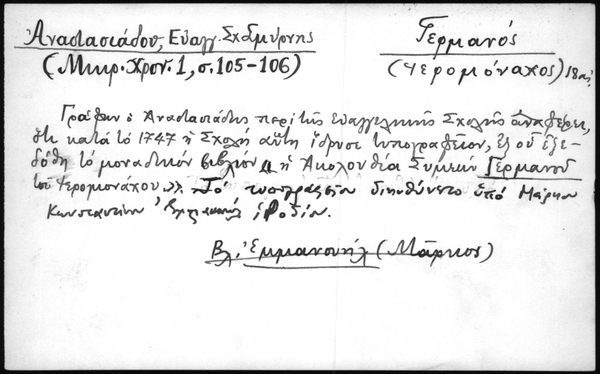 Ἀναστασιάδου, Εὐαγγ. Σχ. Σμύρνης
(Μικρ. Χρον. 1, σ. 105-106)
Γερμανός
(ἱερομόναχος) 18 αἰ.
Γράφων ὁ Ἀναστασιάδης περὶ τῆς Εὐαγγελικῆς Σχολῆς ἀναφέρει,
ὅτι κατὰ τὸ 1747 ἡ Σχολὴ αὕτη ἵδρυσε τυπογραφεῖον, ἐξ οὗ ἐξε-
δόθη τὸ μοναδικὸν βιβλίον " ἡ Ἀκολουθία Συμεὼν Γερμανοῦ
τοῦ ἱερομονάχου ". Τὸ τυπογραφεῖον διηυθύνετο ὑπὸ Μάρκου
Κωνσταντίνου
Βλ. Ἐμμανουὴλ (Μάρκος)